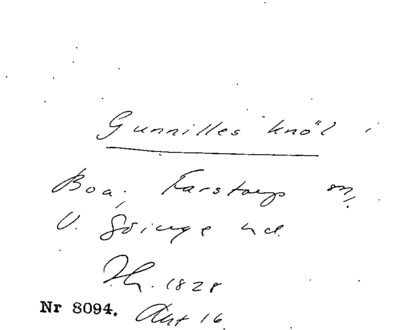 Gunnilles knöl i
Boa, Farstorp sn,
V. Göinge hd.
Th. 1828
Nr 8094. Akt 16